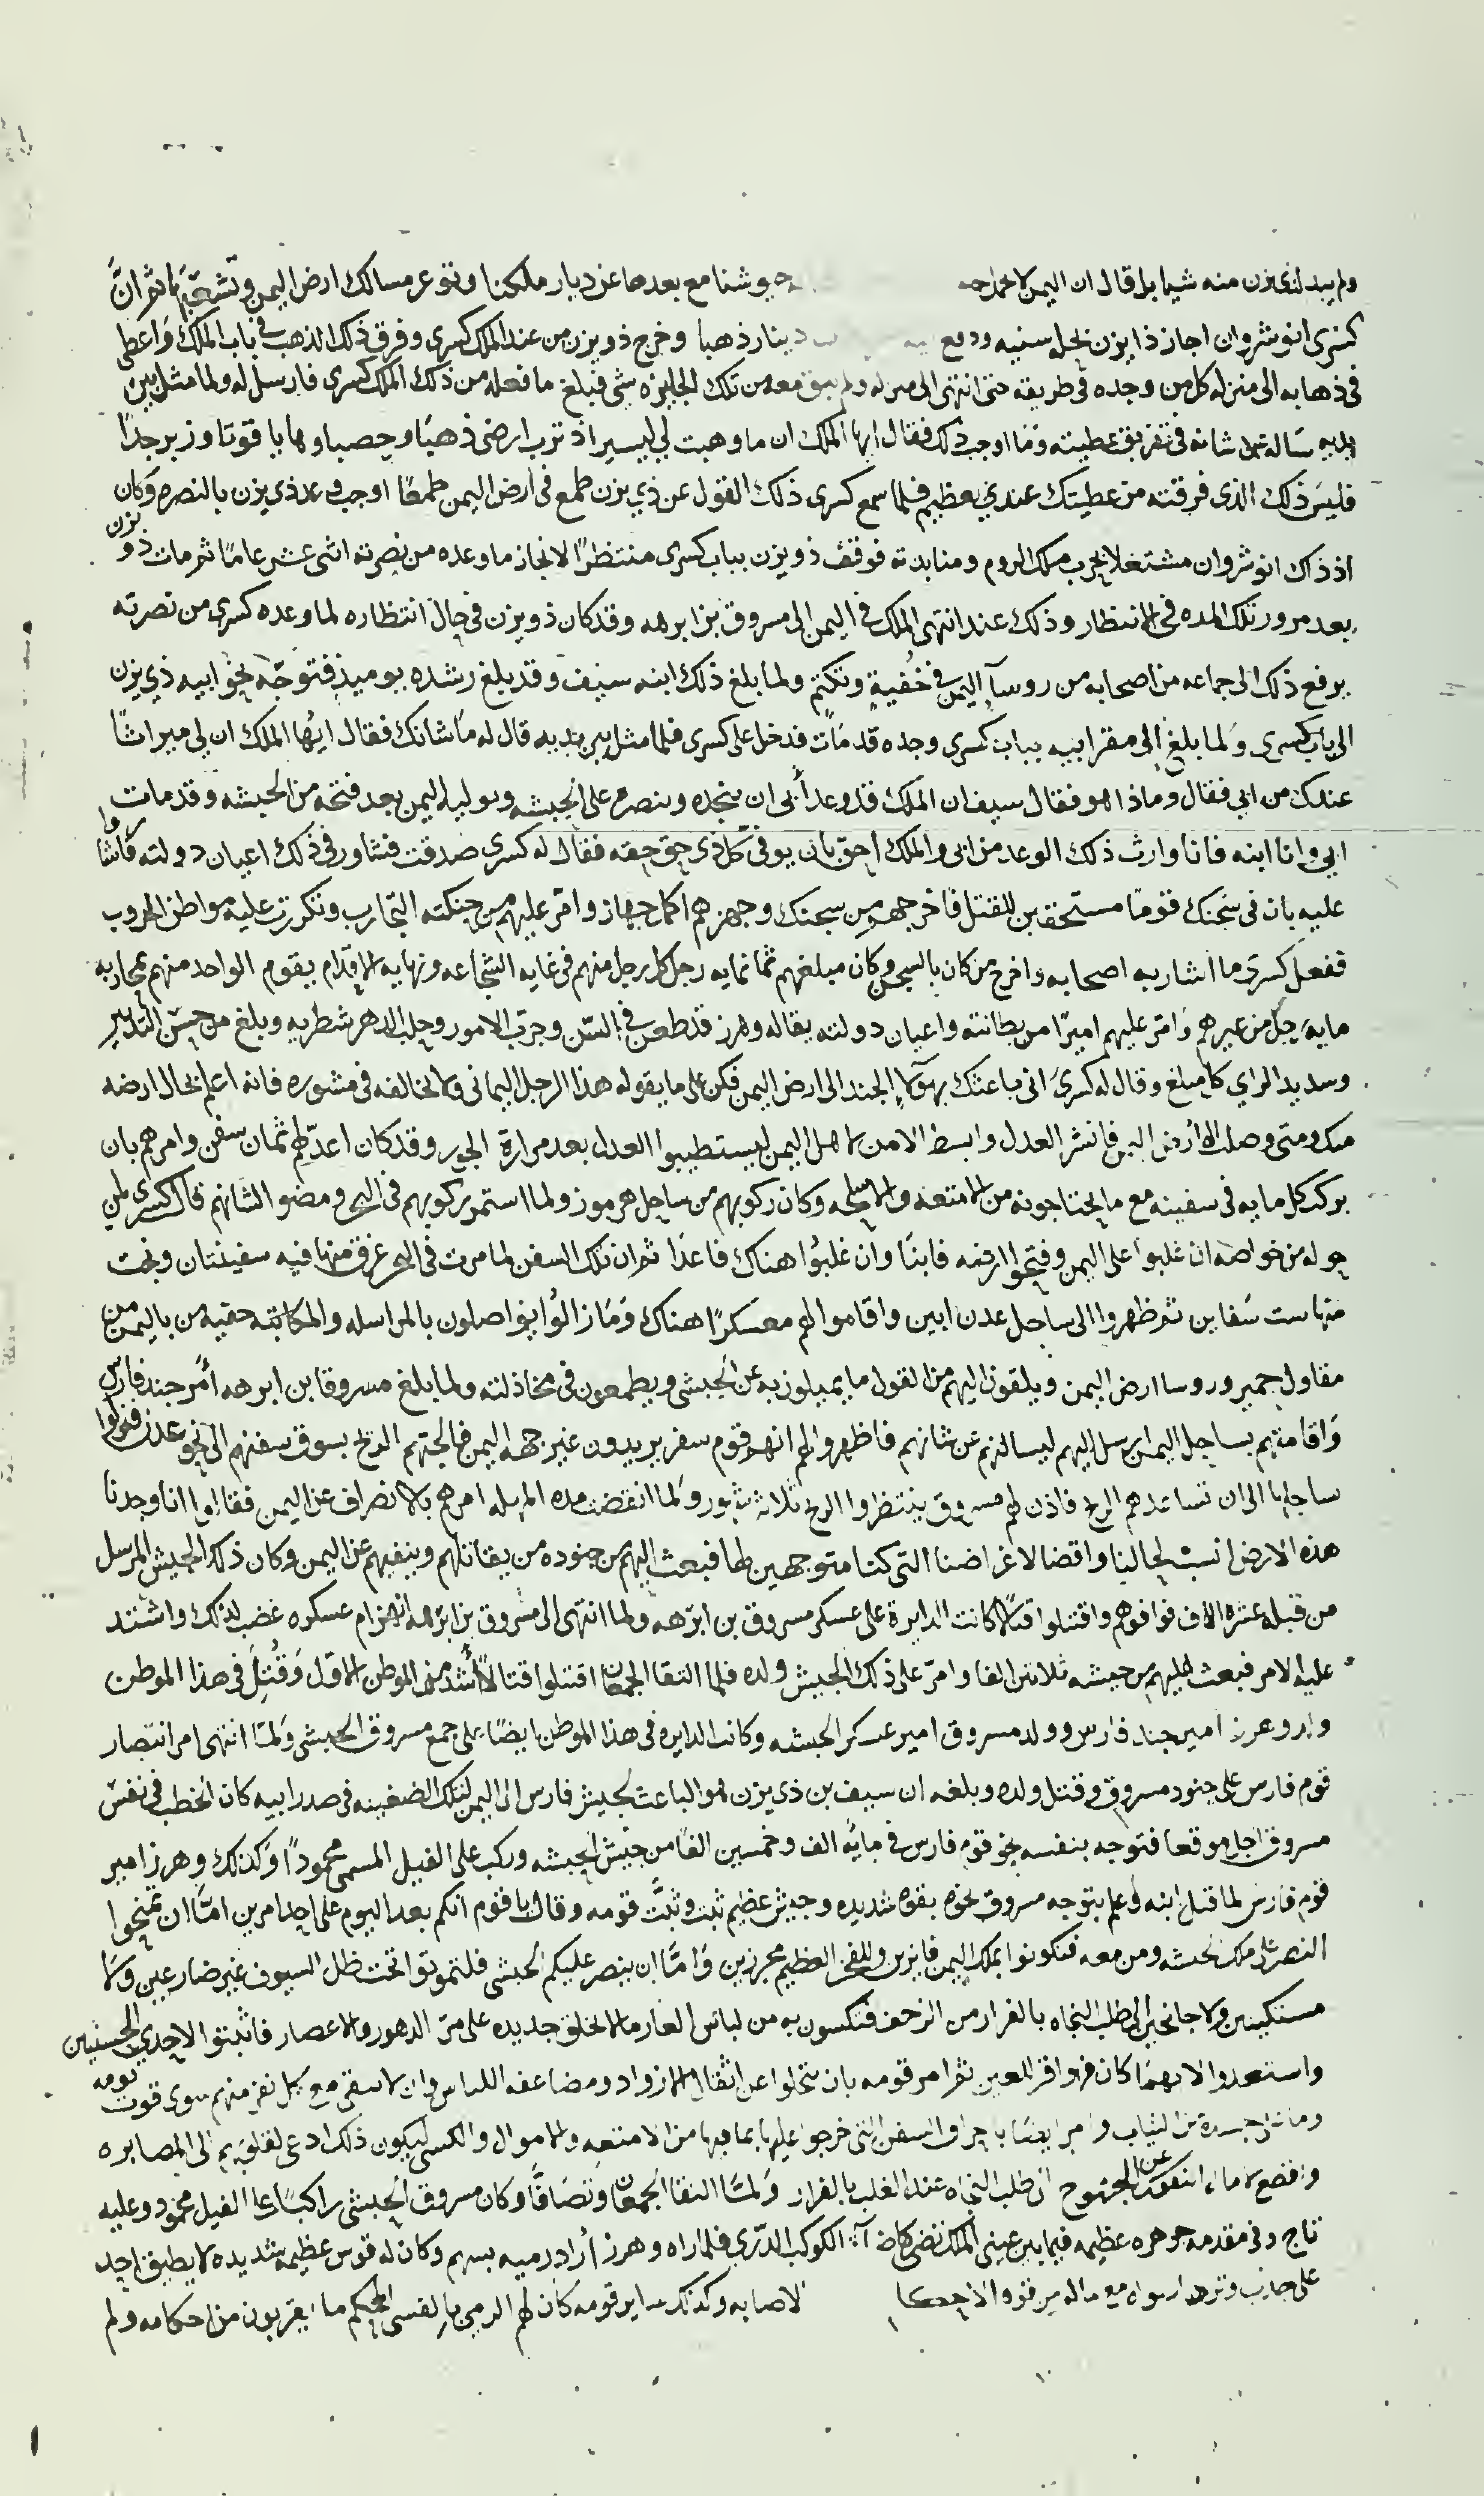 ولم يبد لذي يزن منه شيا بل قال ان اليمن لا جيوشنا مع بعدها عن ديار ملكنا وتوعر مسالك ارض اليمن وتشعبها ثم ان
كسرى انوشروان اجاز ذا يزن بخلع سنيه ودفع دينار ذهبا وخرج ذو يزن من عند الملك كسرى وفرق ذلك الذهب في باب الملك واعطى
في ذهابه الى منزله كل من وجده في طريقه حتى انتهى الى منزله ولم يبق معه من تلك الجايزه شي فبلغ ما فعله من ذلك الملك كسرى فارسل له ولما مثل بين
يديه ساله عن شانه في تفريق عطيته وما اوجب ذلك فقال ايها الملك ان ما وهبت لي ليسير اذ ترب ارضي ذهبا وحصباوها ياقوتا وزبرجدا
فليس ذلك الذى فرقته من عطيتك عندي بعظيم فلما سمع كسرى ذلك القول عن ذي يزن طمع في ارض اليمن طمعا اوجب وعد ذي يزن بالنصره وكان
اذ ذاك انوشروان مشتغلا بحرب ملك الروم ومنابذته فوقف ذو يزن بباب كسرى منتظرا لانجاز ما وعده من نصرته اثنى عشر عاما ثم مات ذو يزن
بعد مرور تلك المده في الانتظار وذلك عند انتهى الملك في اليمن الى مسروق بن ابرهه وقد كان ذو يزن في حال انتظاره لما وعده كسرى من نصرته
يرفع ذلك الى جماعه من اصحابه من روسآ اليمن في خفية وتكتم ولما بلغ ذلك ابنه سيف وقد بلغ رشده يوميذ فتوجه نحو ابيه ذي يزن
الى باب كسرى ولما بلغ الى مقر ابيه بباب كسرى وجده قد مات فدخل على كسرى فلما مثل بين يديه قال له ما شانك فقال ايها الملك ان لي ميراثا
عندك من ابي فقال وماذا هو فقال سيف ان الملك قد وعد أبي ان ينجده وينصره على الحبشه ويوليه اليمن بعد فتحه من الحبشه وقد مات
ابي وانا ابنه فانا وارث ذلك الوعد من ابي والملك احق بان يوفي كل ذي حق حقه فقال له كسرى صدقت فشاور في ذلك اعيان دولته فاشاروا
عليه بان في سجنك قوما مستحقين للقتل فاخرجهم من سجنك وجهزهم اكمل جهاز وامر عليهم من حنكته التجارب وتكررت عليه مواطن الحروب
ففعل كسرى ما اشار به اصحابه واخرج من كان بالسجن وكان مبلغهم ثمانمايه رجل كل رجل منهم في غايه الشجاعه ونهايه الاقدام يقوم الواحد منهم بمحاربه
مايه رجل من غيرهم وامر عليهم اميرا من بطانته واعيان دولته يقال له وهرز قد طعن في السن وجرب الامور وحلب الدهر شطريه وبلغ من حسن التدبير
وسديد الراي كل مبلغ وقال له كسرى اني باعثك بهولآ الجند الى ارض اليمن فكن على ما يقوله هذا الرجل اليماني ولا تخالفه في مشوره فانه اعلم بحال ارضه
منك ومتى وصلت الى أرض اليمن فانشر العدل وابسط الامن لاهل اليمن ليستطيبوا العدل بعد مرارة الجور وقد كان اعد لهم ثمان سفن وامرهم بان
يركب كل مايه في سفينه مع ما يحتاجونه من الامتعه والاسلحه وكان ركوبهم من ساحل هرموز ولما استمر ركوبهم في البحر ومضوا لشانهم قال كسرى لمن
حوله من خواصه ان غلبوا على اليمن وفتحوا ارضه فابنا وان غلبوا هناك فاعدا ثم ان تلك السفن لما مرت في البحر غرق منها فيه سفينتان ونجت
منها ست سفاين ثم ظهروا الى ساحل عدن ابين واقاموا لهم معسكرا هناك وما زالوا يواصلون بالمراسله والمكاتبه خفيه من باليمن من
مقاول حمير وروسا ارض اليمن ويلقون اليهم من القول ما يميلون به عن الحبشي ويطمعون في مخاذلته ولما بلغ مسروقا بن ابرهه أمر جند فارس
واقامتهم بساحل اليمن ارسل اليهم ليسالهم عن شانهم فاظهروا لهم انهم قوم سفر يريدون غير جهه اليمن فالجتهم الريح بسوق سفنهم الى نحو عدن فنزلوا
ساحلها الى ان تساعدهم الريح فاذن لهم مسروق ينتظروا الريح ثلاثه شهور ولما انقضت مده المهله امرهم بالانصراف عن اليمن فقالوا انا وجدنا
هذه الارض انسب لحالنا واقضا لاغراضنا التى كنا متوجهين لها فبعث اليهم من جنوده من يقاتلهم وينفيهم عن اليمن وكان ذلك الجيش المرسل
من قبله عشره الاف فوافوهم واقتتلوا قتالا كانت الدايرة على عسكر مسروق بن ابرهه ولما انتهى الى مسروق بن ابرهه انهزام عسكره غضب لذلك واشتد
عليه الامر فبعث اليهم من حبشه ثلاثين الفا وامر على ذلك الجيش ولده فلما التقا الجمعان اقتتلوا قتالا أشد من الموطن الاول وقتل في هذا الموطن
ولد وهرز امير جند فارس وولد مسروق امير عسكر الحبشه وكانت الدايره في هذا الموطن ايضا على جمع مسروق الحبشي ولما انتهى امر انتصار
قوم فارس على جنود مسروق وقتل ولده وبلغه ان سيف بن ذي يزن هو الباعث لجيش فارس الى اليمن لتلك الضغينه في صدر ابيه كان الخطب في نفس
مسروق اجل موقعا فتوجه بنفسه نحو قوم فارس في مايه الف وخمسين الفا من جيش الحبشه وركب على الفيل المسمى محمودا وكذلك وهرز امير
قوم فارس لما قتل ابنه وعلم بتوجه مسروق نحوه بقوه شديده وجيش عظيم ثبت وثبت قومه وقال يا قوم انكم بعد اليوم على احد امرين امّا ان تمنحوا
النصر على ملك الحبشه ومن معه فتكونوا بملك اليمن فايزين وللفخر العظيم محرزين وامّا ان ينصر عليكم الحبشي فلتموتوا تحت ظل السيوف غير ضارعين ولا
مستكينين ولا جانحين الى طلب النجاه بالفرار من الزحف فتكسون به من لباس العار ما لا يخلق جديده على مر الدهور والاعصار فاثبتوا لاحدى الحسنيين
واستعدوا لايهما كان ثم امر قومه بان يتخلوا عن اثقال الازواد ومضاعفه اللباس وان لا يبقى مع كل نفر منهم سوى قوت يومه
وما على جسده من الثياب وامر ايضا باحراق السفن التى خرجوا عليها بما فيها من الامتعه والاموال والكسى ليكون ذلك ادعى لقلوبهم الى المصابره
واقطع لامال النفوس عن الجنوح الى طلب النجاه عند الغلب بالفرار ولما التقا الجمعان وتصافا وكان مسروق الحبشي راكبا على الفيل محمود وعليه
تاج وفي مقدمه جوهره عظيمه فيما بين عينى الملك تضي كاضآه الكوكب الدري فلما راه وهرز أراد رميه بسهم وكان له قوس عظيمه شديده لا يطيق احد
على جذب وترها سواه مع ماله من قوه الاصابه وكذلك ساير قومه كان لهم الرمي بالقسى المحكم ما يقربون من احكامه ولم